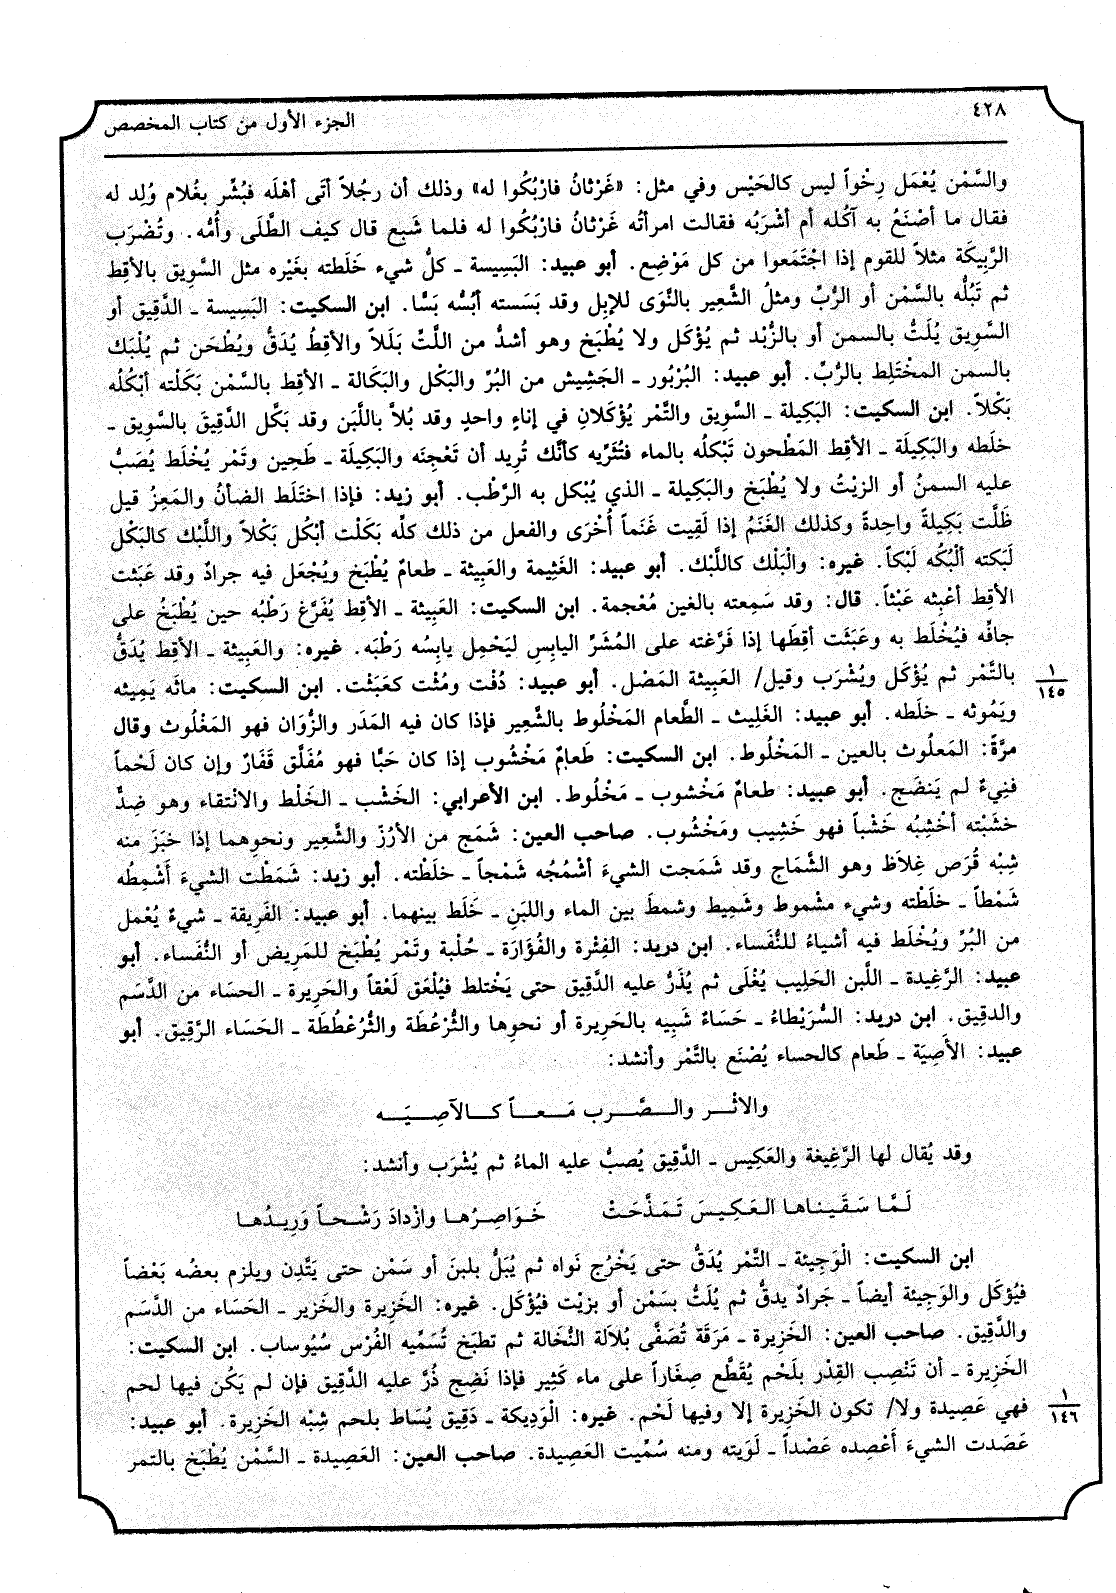 ٤٢٨
الجزء الأول من كتاب المخصص
والسَّمْن يُعْمَل رِخْواً ليس كالحَيْس وفي مثل: «غَرْثانُ فارْبُكُوا له» وذلك أن رجُلاً أتَى أهْلَه فبُشِّر بغُلام وُلِد له
فقال ما أصْنَعُ به آكُله أم أشْرَبُه فقالت امرأتُه غَرْثانُ فارْبُكُوا له فلما شَبِع قال كيف الطَّلَى وأُمُّه. وتُضْرَب
الرَّبِيكَة مثلاً للقوم إذا اجْتَمَعوا من كل مَوْضِع. أبو عبيد: البَسِيسة ـ كلُّ شيء خَلَطته بغَيْره مثل السَّوِيق بالأقِط
ثم تَبُلُّه بالسَّمْن أو الرُّبِّ ومثلُ الشَّعِير بالنَّوَى للإبِل وقد بَسَسته أبُسُّه بَسًّا. ابن السكيت: البَسِيسة ـ الدَّقِيق أو
السَّوِيق يُلَتُّ بالسمن أو بالزُّبْد ثم يُؤْكَل ولا يُطْبَخ وهو أشدُّ من اللَّتِّ بَلَلاً والأقِطُ يُدَقُّ ويُطْحَن ثم يُلْبَك
بالسمن المخْتَلِط بالرُّبِّ. أبو عبيد: البُرْبُور ـ الجَشِيش من البُرِّ والبَكْل والبَكَالة ـ الأقِط بالسَّمْن بَكَلْته أبْكُلُه
بَكْلاً. ابن السكيت: البَكِيلة ـ السَّوِيق والتَّمْر يُؤْكَلانِ في إناءٍ واحدٍ وقد بُلاَّ باللَّبَن وقد بَكَّل الدَّقِيقَ بالسَّوِيق ـ
خلَطه والبَكِيلَة ـ الأقِط المَطْحون تَبْكلُه بالماء فتُثَرِّيه كأنَّك تُرِيد أن تَعْجِنَه والبَكِيلَة ـ طَحِين وتَمْر يُخْلَط يُصَبُّ
عليه السمنُ أو الزيْتُ ولا يُطْبَخ والبَكِيلة ـ الذي يُبْكل به الرَّطْب. أبو زيد: فإذا اختَلَط الضأنُ والمَعِزُ قيل
ظَلَّت بَكِيلةً واحِدةً وكذلك الغَنَمُ إذا لَقِيت غَنَماً أُخْرَى والفعل من ذلك كلِّه بَكَلْت أبْكُل بَكْلاً واللَّبْك كالبَكْل
لَبَكته ألْبُكُه لَبْكاً. غيره: والْبَلْك كاللَّبْك. أبو عبيد: الغَثِيمة والعَبِيثة ـ طعامٌ يُطْبَخ ويُجْعَل فيه جرادٌ وقد عَبَثت
الأقِط أعْبِثه عَبْثاً. قال: وقد سَمِعته بالغين مُعْجمة. ابن السكيت: العَبِيثة ـ الأقِط يُفَرَّغ رَطْبُه حين يُطْبَخُ على
جافِّه فيُخْلَط به وعَبَثَت أقِطَها إذا فَرَّغته على المُشَرِّ اليابِس ليَحْمِل يابِسُه رَطْبَه. غيره: والعَبِيثة ـ الأقِط يُدَقُّ
بالتَّمْر ثم يُؤْكَل ويُشْرَب وقيل/ العَبِيثة المَصْل. أبو عبيد: دُفْت ومُثْت كعَبَثْت. ابن السكيت: ماثَه يَمِيثه
١
١٤٥
ويَمُوثه ـ خلَطه. أبو عبيد: الغَلِيث ـ الطَّعام المَخْلُوط بالشَّعِير فإذا كان فيه المَدَر والزُّوَان فهو المَغْلُوث وقال
مرَّةً: المَعلُوث بالعين ـ المَخْلُوط. ابن السكيت: طَعامٌ مَخْشُوب إذا كان حَبًّا فهو مُفَلَّق قَفَارٌ وإن كان لَحْماً
فنِيءٌ لم يَنضَج. أبو عبيد: طعامٌ مَخْشوب ـ مَخْلُوط. ابن الأعرابي: الخَشْب ـ الخَلْط والانْتقاء وهو ضِدٌّ
خشَبْته أخْشِبُه خَشْباً فهو خَشِيب ومَخْشُوب. صاحب العين: شَمَج من الأرُزّ والشَّعِير ونحوِهما إذا خبَزَ منه
شِبْه قُرَص غِلاَظ وهو الشَّمَاج وقد شَمَجت الشيءَ أشْمُجُه شَمْجاً ـ خلَطْته. أبو زيد: شَمَطْت الشيءَ أَشْمِطُه
شَمْطاً ـ خلَطْته وشيء مشْموط وشَمِيط وشمطَ بين الماء واللبَنِ ـ خَلَط بينهما. أبو عبيد: الفَرِيقة ـ شيءٌ يُعْمَل
من البُرِّ ويُخْلَط فيه أشياءُ للنُّفَساء. ابن دريد: الفِئْرة والفُؤَارَة ـ حُلْبة وتَمْر يُطْبَخ للمَرِيض أو النُّفَساء. أبو
عبيد: الرَّغِيدة ـ اللَّبن الحَلِيب يُغْلَى ثم يُذَرُّ عليه الدَّقِيق حتى يَخْتلط فيُلْعَق لَعْقاً والحَرِيرة ـ الحسَاء من الدَّسَم
والدقِيق. ابن دريد: السُّرَيْطاءُ ـ حَسَاءٌ شَبِيه بالحَرِيرة أو نحوِها والثُّرْعُطَة والثُّرُعْطُطَة ـ الحَسَاء الرَّقِيق. أبو
عبيد: الأَصِيَة ـ طَعام كالحساء يُصْنَع بالتَّمْر وأنشد:
والاثْــر والــصَّــرب مَــعــاً كــالآصِــيَــه
وقد يُقال لها الرَّغِيغة والعَكِيس ـ الدَّقِيق يُصبُّ عليه الماءُ ثم يُشْرَب وأنشد:
لَمَّا سَقَيناها العَكِيسَ تَمَذَّحَتْ خَوَاصِرُها وازْدادَ رَشْحاً وَرِيدُها
ابن السكيت: الْوَجِيئة ـ التَّمْر يُدَقُّ حتى يَخْرُج نَواه ثم يُبَلُّ بلبنَ أو سَمْن حتى يَتَّدِن ويلزم بعضُه بَعْضاً
فيُؤكَل والوَجِيئة أيضاً ـ جَرادٌ يدقُّ ثم يُلَتُّ بسَمْن أو بزيْت فيُؤْكَل. غيره: الخَزِيرة والخَزير ـ الحَسَاء من الدَّسَم
والدَّقِيق. صاحب العين: الخَزِيرة ـ مَرَقة تُصَفَّى بُلاَلة النُّخَالة ثم تطبَخ تُسَمِّيه الفُرْس سُيُوساب. ابن السكيت:
الخَزِيرة ـ أن تَنْصِب القِدْر بلَحْم يُقَطَّع صِغَاراً على ماء كَثِير فإذا نَضِج ذُرَّ عليه الدَّقيق فإن لم يَكُن فيها لحم
فهي عَصِيدة ولا/ تكون الخَزِيرة إلا وفيها لَحْم. غيره: الْوَدِيكة ـ دَقِيق يُسَاط بلحم شِبْه الخَزِيرة. أبو عبيد:
١
١٤٦
عَصَدت الشيءَ أَعْصِده عَصْداً ـ لَوَيته ومنه سُمِّيت العَصِيدة. صاحب العين: العَصِيدة ـ السَّمْن يُطْبَخ بالتمر